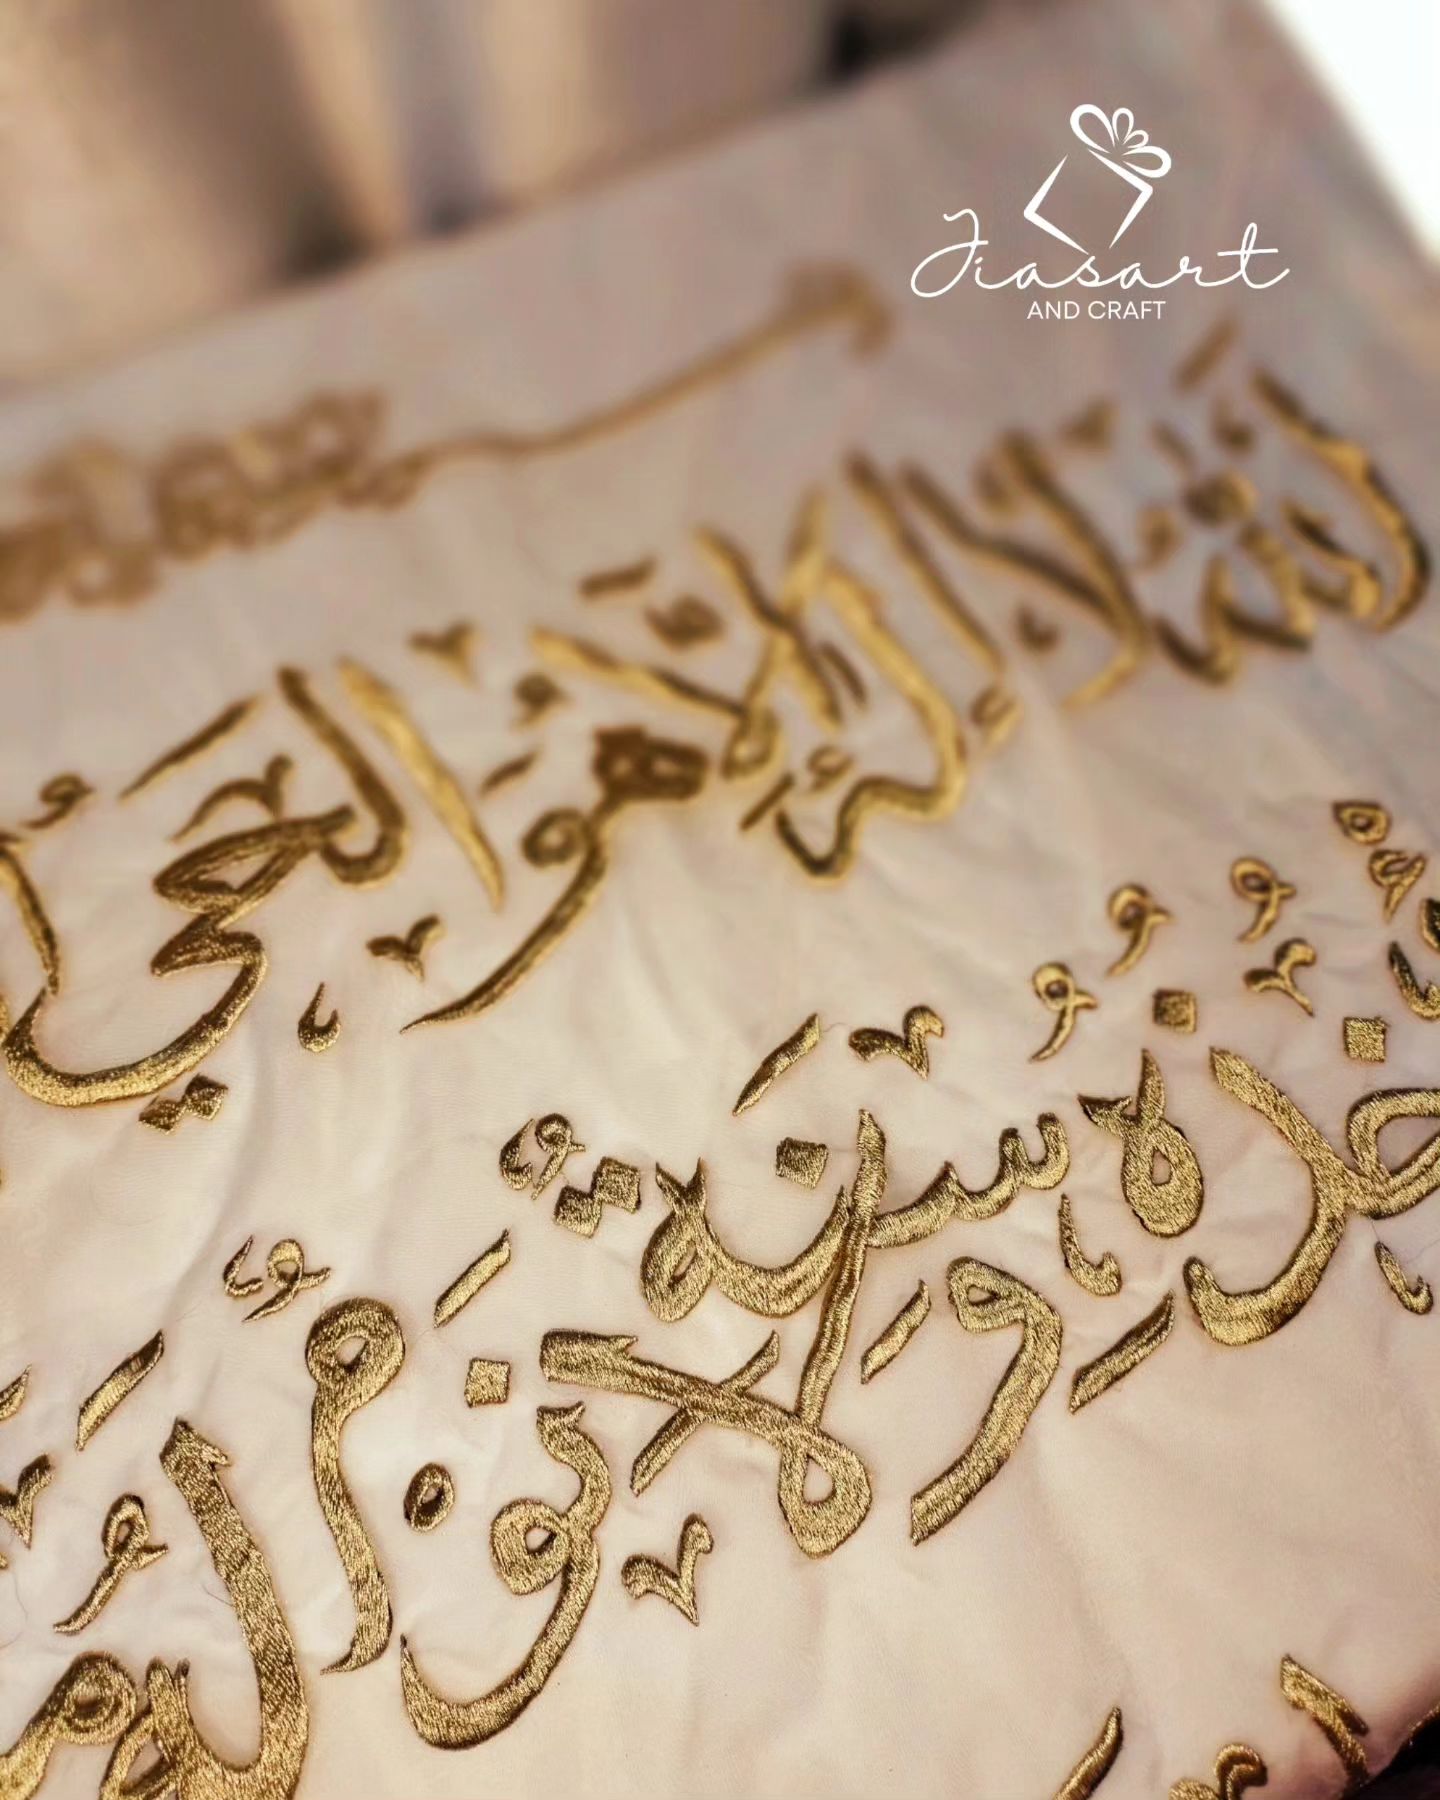 Jiasart
AND CRAFT
اللَّهُ لَا إِلَٰهَ إِلَّا هُوَ الْحَيُّ
تَأْخُذُهُ سِنَةٌ وَلَا نَوْمٌ لَهُ